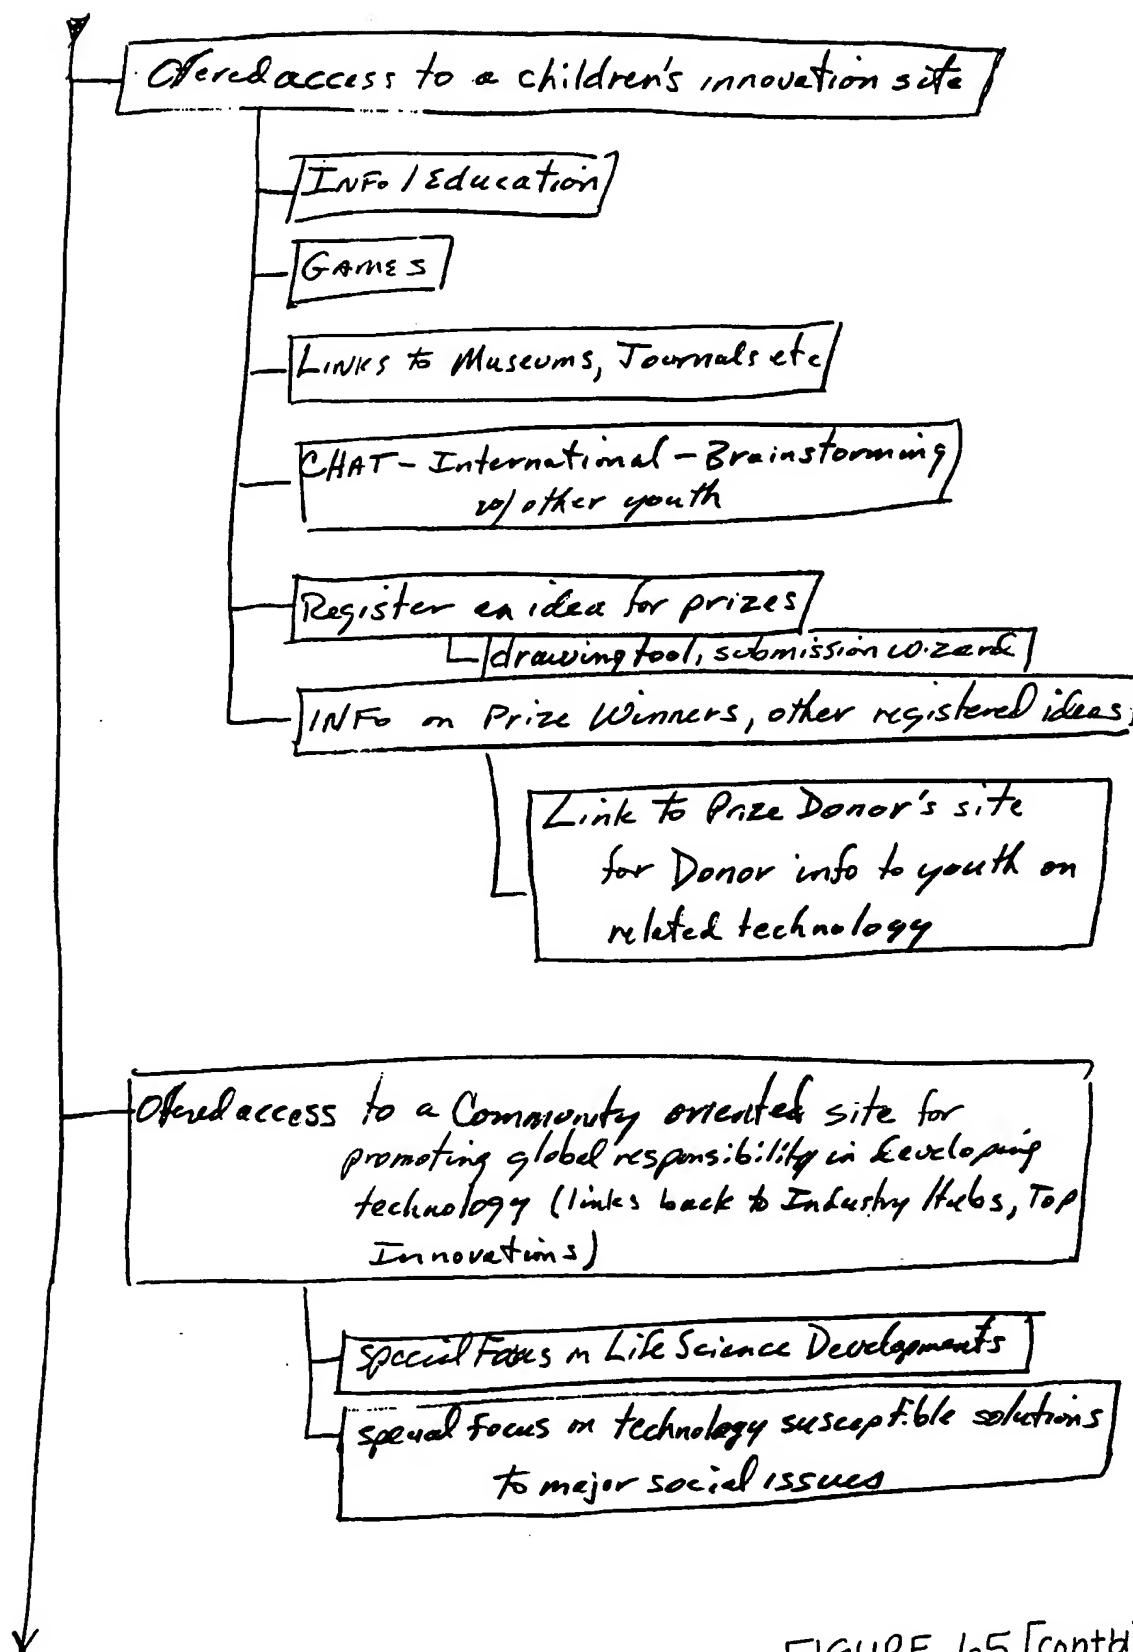 Offered access to a children's innovation site
INFo / Education
GAMES
LINKS to Museums, Journals etc
CHAT - International - Brainstorming
w/ other youth
Register an idea for prizes
drawing tool, submission wizard
INFo on Prize Winners, other registered ideas
Link to Prize Donor's site
for Donor info to youth on
related technology
Offered access to a Community oriented site for
promoting global responsibility in developing
technology (links back to Industry Hubs, Top
Innovations)
special Focus on Life Science Developments
special focus on technology susceptible solutions
to major social issues